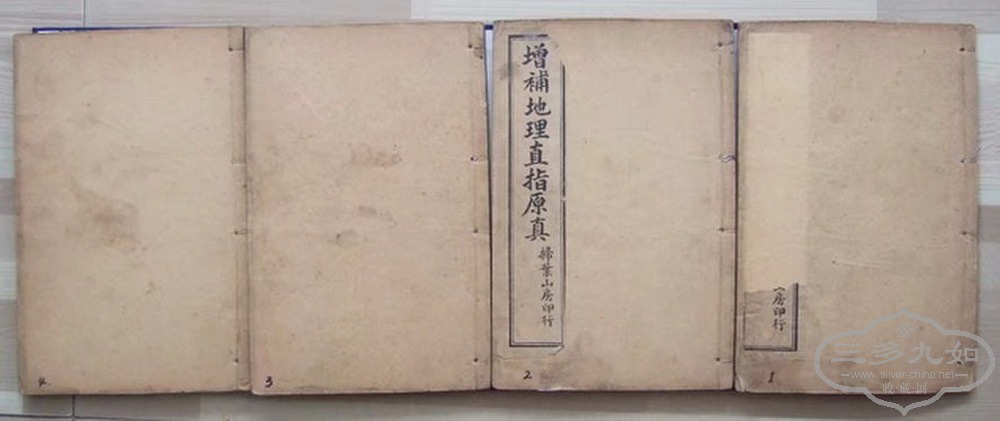 增補地理直指原真
掃葉山房印行
房印行
1
2
3
4.
三多九如
www.silver-china.net
收·藏·网